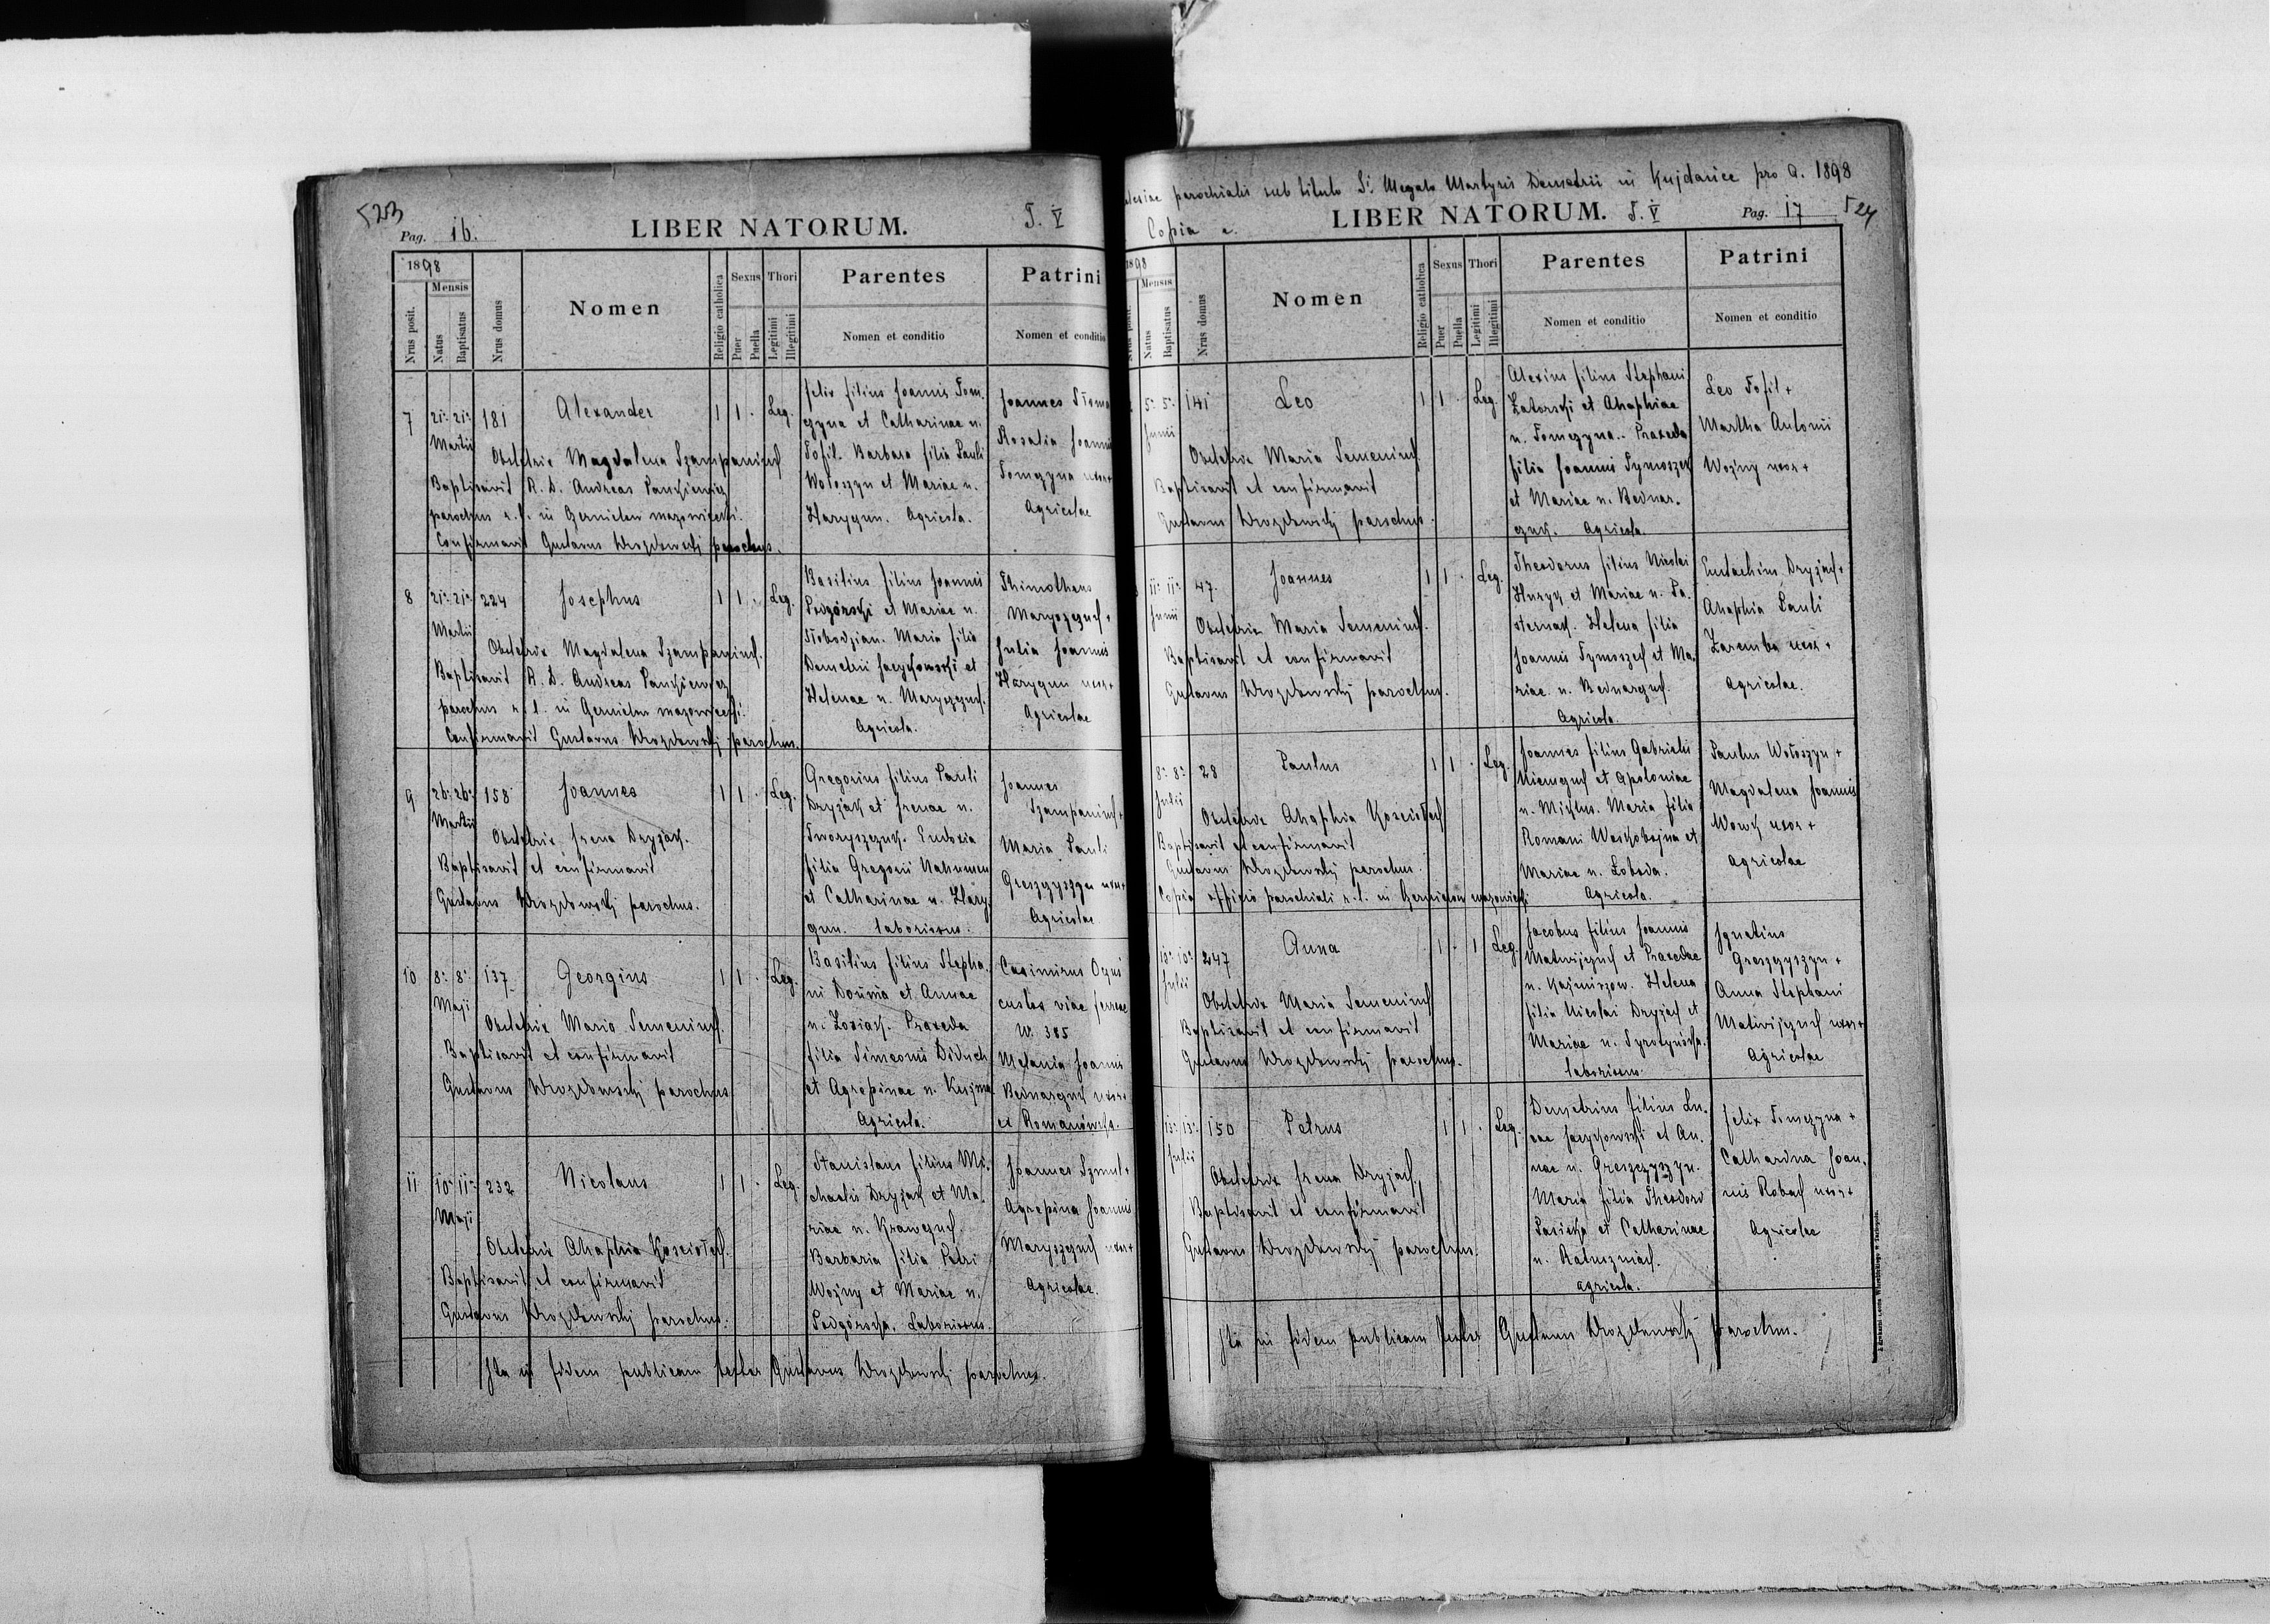 523
Pag. 16.
LIBER NATORUM.
T. V
1898
Mensis
Nrus posit.
Natus
Baptisatus
Nrus domus
Nomen
Religio catholica
Sexus
Puer
Puella
Thori
Legitimi
Illegitimi
Parentes
Nomen et conditio
Patrini
Nomen et conditio
7 21. 21. 181 Alexander 1 1 . Leg.
Martii
Obstetrix Magdalena Szampaniuk
Baptisavit R. D. Andreas Pankiewicz
parochus r. l. in Czernielow mazowiecki.
Confirmavit Gustavus Drozdowskij parochus.
Felix filius Joannis Tom-
czyna et Catharinae n.
Tofil. Barbara filia Pauli
Wołoszyn et Mariae n.
Harygun. Agricola.
Joannes
Rosalia Joannis
Tomczyna uxor+
Agricolae
8 21. 21. 224 Josephus 1 1 . Leg.
Martii
Obstetrix Magdalena Szampaniuk.
Baptisavit R. D. Andreas Pankiewicz
parochus r. l. in Czernielow mazowiecki.
Confirmavit Gustavus Drozdowskij parochus.
Basilius filius Joannis
Podgórski et Mariae n.
Słobodzian. Maria filia
Demetrii Jacykowski et
Helenae n. Maryszczuk.
Agricola.
Thimotheus
Maryszczuk +
Julia Joannis
Harygun uxor+
Agricolae
9 26. 26. 158 Joannes 1 1 . Leg.
Martii
Obstetrix Irena Dryjak.
Baptisavit et confirmavit
Gustavus Drozdowskij parochus.
Gregorius filius Pauli
Dryjak et Irenae n.
Tworyszczuk. Eudoxia
filia Gregorii Nahumen
et Catharinae n. Hary-
gun. laboriosus.
Joannes
Szampaniuk +
Maria Pauli
Greszczyszyn uxor+
Agricolae
10 8. 8. 137 Georgius 1 1 . Leg.
Maji
Obstetrix Maria Semeniuk.
Baptisavit et confirmavit
Gustavus Drozdowskij parochus
Basilius filius Stepha-
ni Douma et Annae
n. Zosiak. Praxeda
filia Simeonis Diduch
et Agrepinae n. Kuzma
Agricola.
Casimirus
custos viae ferreae
W. 385
Melania Joannis
Bednarczuk uxor+
et Romanówka.
11 10. 11. 232 Nicolaus 1 1 . Leg.
Maji
Obstetrix Ahaphia Kosciołek.
Baptisavit et confirmavit
Gustavus Drozdowskij parochus.
Stanislaus filius Mi-
chaelis Dryjak et Ma-
riae n. Krawczuk.
Barbaria filia Petri
Woźny et Mariae n.
Podgórska. Laboriosus.
Joannes Szmul+
Agrepina Joannis
Maryszczuk uxor+
Agricolae.
Ita in fidem publicam testor Gustavus Drozdowskij parochus.
parochialis sub titulo St Megalo Martyris Demetrii in Kujdanice pro a. 1898
Copia
LIBER NATORUM. T. V
Pag. 17 524
1898
Mensis
Natus
Baptisatus
Nrus domus
Nomen
Religio catholica
Sexus
Puer
Puella
Thori
Legitimi
Illegitimi
Parentes
Nomen et conditio
Patrini
Nomen et conditio
5. 5. 141 Leo 1 1 . Leg.
Junii
Obstetrix Maria Semeniuk
Baptisavit et confirmavit
Gustavus Drozdowskij parochus.
Alexius filius Stephani
Zatorski et Ahaphiae
n. Tomczyna. Praxeda
filia Joannis Tymoszek
et Mariae n. Bednar-
czuk. Agricola.
Leo Tofil +
Martha Antonii
Woźny uxor+
11. 11. 47. Joannes 1 1 . Leg.
Junii
Obstetrix Maria Semeniuk.
Baptisavit et confirmavit
Gustavus Drozdowskij parochus.
Theodorus filius Nicolai
Huzyk et Mariae n. Pa-
sternak. Helena filia
Joannis Tymoszek et Ma-
riae n. Bednarczuk.
Agricola.
Eustachius Dryjak+
Ahaphia Pauli
Zaremba uxor +
Agricolae.
8. 8. 28 Paulus 1 1 . Leg.
Julii
Obstetrix Ahaphia Kosciołek
Baptisavit et confirmavit
Gustavus Drozdowskij parochus.
Copia officio parochiali r. l. in Czernielow mazowiecki
Joannes filius Gabrielis
Niemczuk et Apoloniae
n. Miklus. Maria filia
Romani Woskobojna et
Mariae n. Loboda.
Agricola.
Paulus Wołoszyn +
Magdalena Joannis
Wowk uxor +
Agricolae
10. 10. 247 Anna 1 . 1 Leg.
Julii
Obstetrix Maria Semeniuk
Baptisavit et confirmavit
Gustavus Drozdowskij parochus.
Jacobus filius Joannis
Matwijczuk et Praxedae
n. Kaźmirzow. Helena
filia Nicolai Dryjak et
Mariae n. Syrotyńska.
laboriosus.
Ignatius
Greszczyszyn +
Anna Stephani
Matwijczuk uxor+
Agricolae
13. 13. 150 Petrus 1 1 . Leg.
Julii
Obstetrix Irena Dryjak,
Baptisavit et confirmavit
Gustavus Drozdowskij parochus.
Demetrius filius Lu-
cae Jacykowski et An-
nae n. Greszczyszyn.
Maria filia Theodori
Pasieka et Catharinae
n. Ratuszniak.
agricola.
Felix Tomczyna +
Catharina Joan-
nis Robak uxor+
Agricolae
Ita in fidem publicam testor Gustavus Drozdowskij parochus.